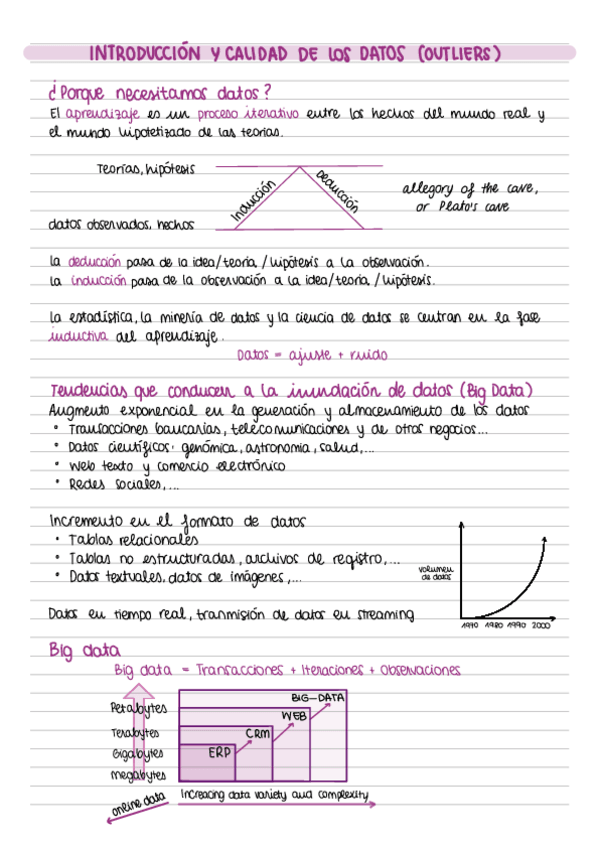 INTRODUCCIÓN Y CALIDAD DE LOS DATOS (OUTLIERS)
¿Porque necesitamos datos?
El aprendizaje es un proceso iterativo entre los hechos del mundo real y
el mundo hipotetizado de las teorías.
Teorías, hipótesis
Inducción
Deducción
allegory of the cave,
or Plato's cave
datos observados, hechos
La deducción pasa de la idea/teoría/hipótesis a la observación.
La inducción pasa de la observación a la idea/teoría/hipótesis.
La estadística, la minería de datos y la ciencia de datos se centran en la fase
inductiva del aprendizaje.
Datos = ajuste + ruido
Tendencias que conducen a la inundación de datos (Big Data)
Augmento exponencial en la generación y almacenamiento de los datos
• Transacciones bancarias, telecomunicaciones y de otros negocios...
• Datos científicos: genómica, astronomia, salud,...
• Web texto y comercio electrónico
• Redes sociales,...
Incremento en el formato de datos
• Tablas relacionales
• Tablas no estructuradas, archivos de registro,...
• Datos textuales, datos de imágenes,...
volumen
de datos
1970 1980 1990 2000
Datos en tiempo real, tranmisión de datos en streaming
Big data
Big data = Transacciones + Iteraciones + Observaciones
Petabytes
Terabytes
Gigabytes
Megabytes
BIG-DATA
WEB
CRM
ERP
online data
Increacing data variety and complexity